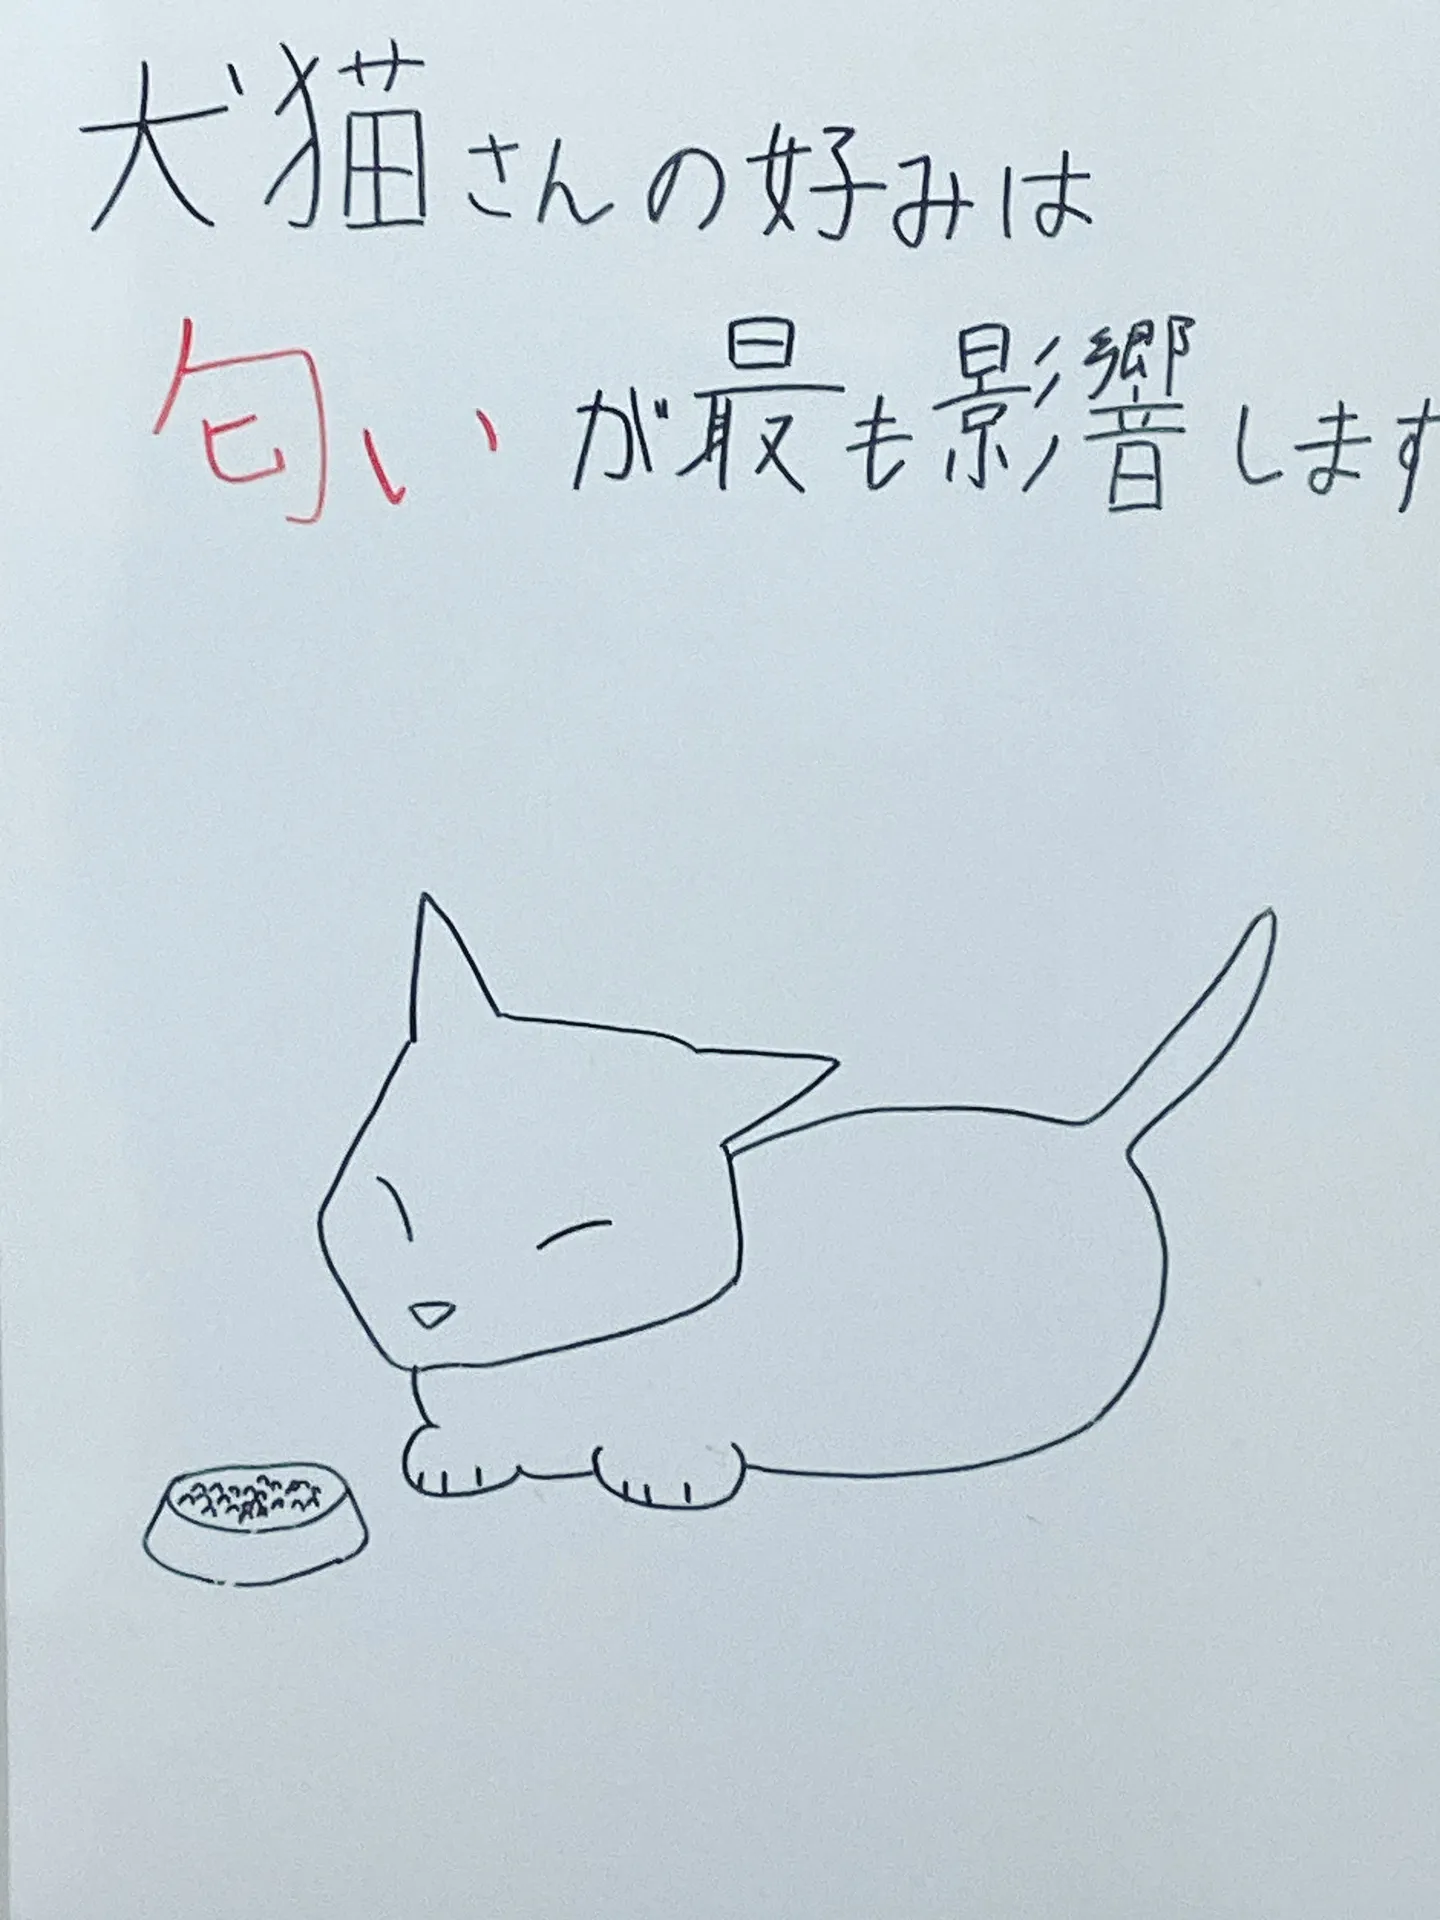 犬猫さんの好みは
匂いが最も影響します